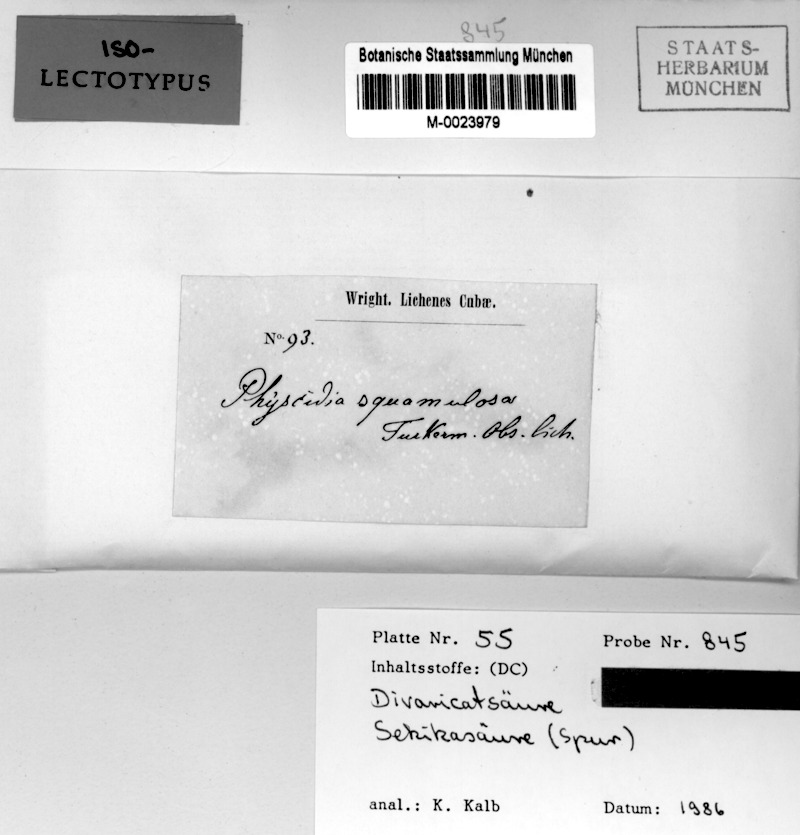 ISO-
LECTOTYPUS
845
Botanische Staatssammlung München
M-0023979
STAATS-
HERBARIUM
MÜNCHEN
Wright. Lichenes Cubæ.
No. 93.
Physcidia squamulosa
Tuckerm. Obs. Lich.
Platte Nr. 55
Probe Nr. 845
Inhaltsstoffe: (DC)
Divaricatsäure
Sekikasäure (Spur)
anal.: K. Kalb
Datum: 1986